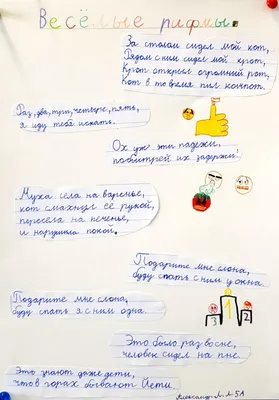 Весёлые рифмы.
За столом сидел мой кот,
Рядом с ним сидел мой крот,
Крот открыл огромный рот,
Кот в то время пил компот.
Раз, два, три, четыре, пять,
я иду тебя искать.
Ох уж эти падежи,
побыстрей их задержи!
Муха села на варенье,
кот смахнул её рукой,
пересела на печенье,
и нарушила покой.
Подарите мне слона,
буду спать с ним у окна
Подарите мне слона,
буду спать я с ним одна.
1
3
2
Это было раз во сне,
человек сидел на пне.
Это знают даже дети,
что в горах бывают Йети.
Александр Л. Л. 5А